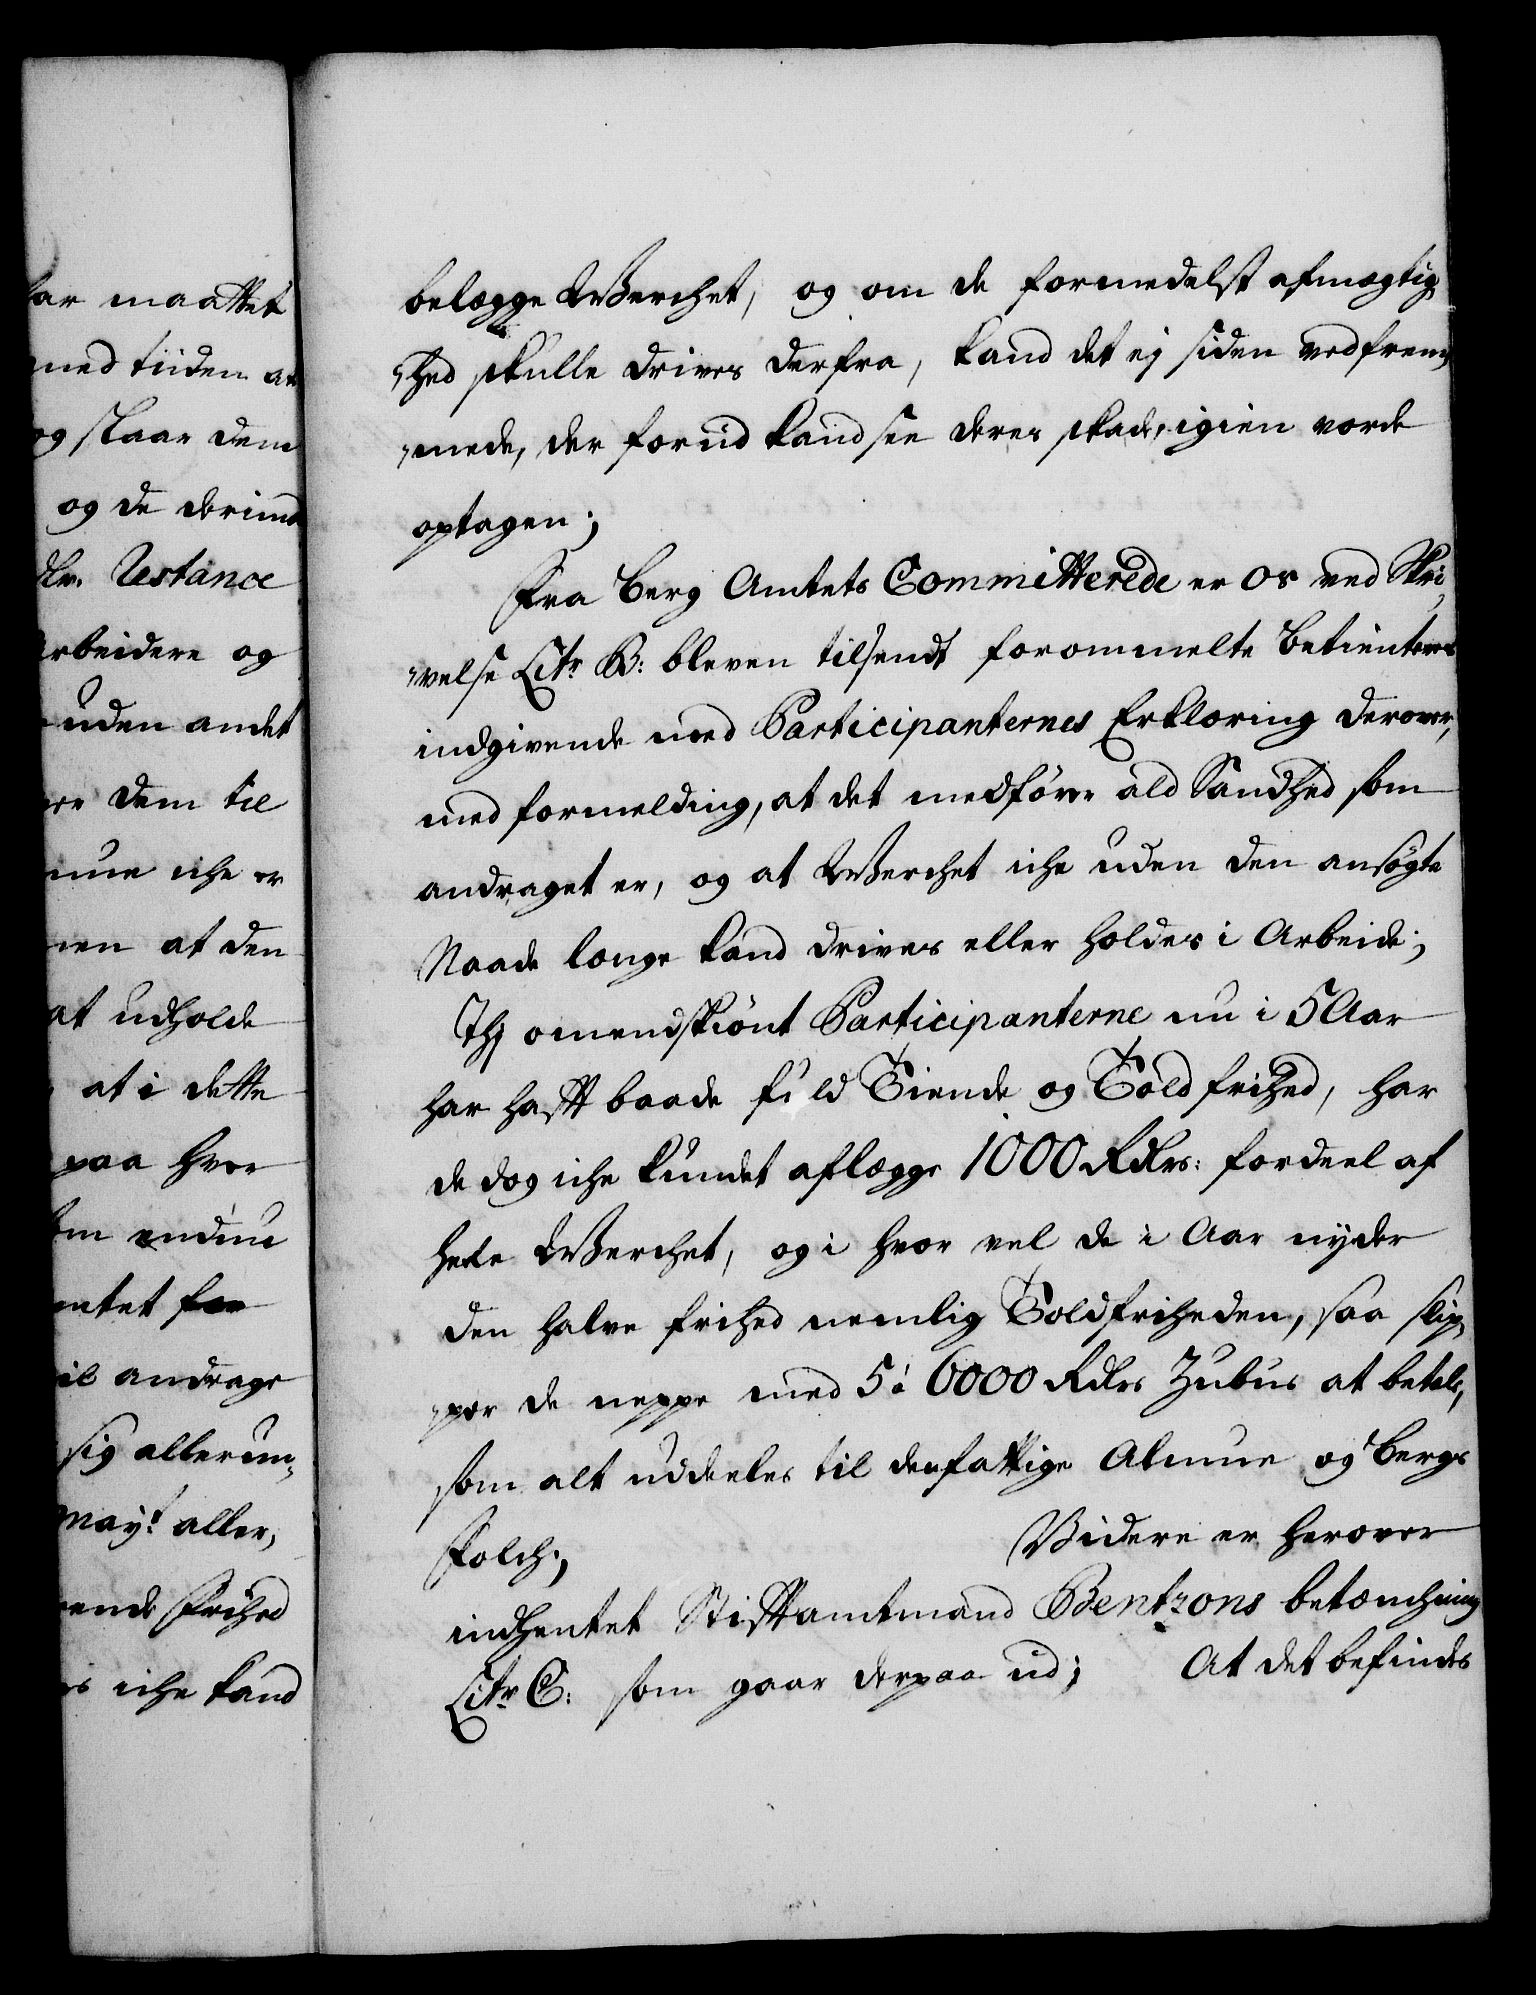 har maattet
med tiiden at
og slaar dem
og de derimod
dlr. Restance
arbeidere og
uden andet
dem til
iche er
men at den
at udholde
at i dette
paa hvor
endnu
ntet for
til andrage
sig allerun„
May:t aller„
ende Frihed
iche kand
belægge Werchet, og om de formedelst afmægtig„
„hed skulle drives derfra, kand det ej siden ved frem„
„mede, der forud kand see deres skade, igien vorde
optagen;
Fra Berg Amtets Committerede er os ved Skri„
„velse Litr B: bleven tilsendt forommelte Betienteres
indgivende med Participanternes Erklæring derover,
med formelding, at det medfører ald Sandhed som
andraget er, og at Werchet iche uden den ansøgte
Naade længe kand drives eller holdes i Arbeide;
Thj omendskiønt Participanterne nu i 5 Aar
har hafft baade fuld Tiende og Told frihed, har
de dog iche kundet aflægge 1000 Rdlrs: fordeel af
hele Werchet, og i hvor vel de i Aar nyder
den halve frihed nemlig Toldfriheden, saa slip„
„per de neppe med 5 à 6000 Rdlrs Zubus at betale,
som alt uddeeles til den fattige Almue og Bergs
Folch; Videre er herover
indhentet Stifftamtmand Bentzons betænchning
Litr C: som gaar derpaa ud; At det befindes